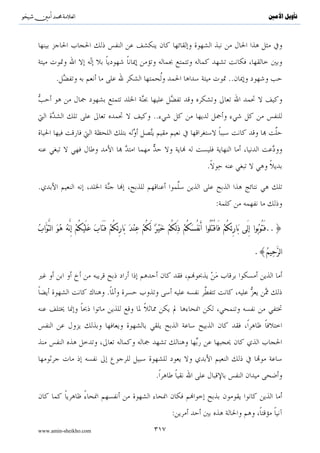 تأويل الأمين
العلامة محمد أمين شيخو
وفي مثل هذا الحال من نبذ الشهوة وإلقائها كان ينكشف عن النفس ذلك الحجاب الحاجز بينها
وبين خالقها، فكانت تشهد كماله وتتمتع بجماله وتؤمن إيماناً شهودياً بلا إلۤه إلا الله وتموت ميتة
حب وشهود وإيمان.. تموت ميتة سداها الحمد ولُحمتها الشكر لله على ما أنعم به وتفضَّل.
وكيف لا تحمد الله تعالى وتشكره وقد تفضَّل عليها بجنَّة الخلد تتمتع بشهود جمال من هو أحبُّ
للنفس من كل شيء وأجمل لديها من كل شيء.. وكيف لا تحمده تعالى على تلك الشدَّة التي
حلَّت بها وقد كانت سبباً لاستغراقها في نعيم مقيم يتَّصل أوَّله بتلك اللحظة التي فارقت فيها الحياة
وودَّعت الدنيا، أما النهاية فليست له نهاية ولا حدٌّ مهما امتدَّ بها الأمد وطال فهي لا تبغي عنه
بديلاً وهي لا تبغي عنه حِولاً.
تلك هي نتائج هذا الذبح على الذين سلَّموا أعناقهم للذبح، إنها جنَّة الخلد، إنه النعيم الأبدي.
وذلك ما نفهمه من كلمة:
﴿..فَتُوبُوا إِلَى بَارِئِكُمْ فَاقْتُلُوا أَنْفُسَكُمْ ذَلِكُمْ خَيْرٌ لَكُمْ عِنْدَ بَارِئِكُمْ فَتَابَ عَلَيْكُمْ إِنَّهُ هُوَ التَّوَّابُ
الرَّحِيمُ﴾.
أما الذين أمسكوا برقاب مَنْ يذبحونهم، فقد كان أحدهم إذا أراد ذبح قريبه من أخ أو ابن أو غير
ذلك ممَّن يعزُّ عليه، كانت تتفطَّر نفسه عليه أسى وتذوب حسرة وألماً. وهناك كانت الشهوة أيضاً
تختفي من نفسه وتنمحي، لكن انمحاءها لم يكن مماثلاً لما وقع للذين ماتوا ذبحاً وإنما يختلف عنه
اختلافاً ظاهراً، فقد كان الذبيح ساعة الذبح يلقي بالشهوة ويعافها وبذلك يزول عن النفس
الحجاب الذي كان يحجبها عن ربِّها وهنالك تشهد جماله وكماله تعالى، وتدخل هذه النفس منذ
ساعة موتها في ذلك النعيم الأبدي ولا يعود للشهوة سبيل للرجوع إلى نفسه إذ مات جرثومها
وأضحى ميدان النفس بالإقبال على الله نقياً طاهراً.
أما الذين كانوا يقومون بذبح إخوانهم فكان انمحاء الشهوة من أنفسهم انمحاءً ظاهرياً كما كان
آنياً مؤقتاً، وهم والحالة هذه بين أحد أمرين:
www.amin-sheikho.com
٣١٧